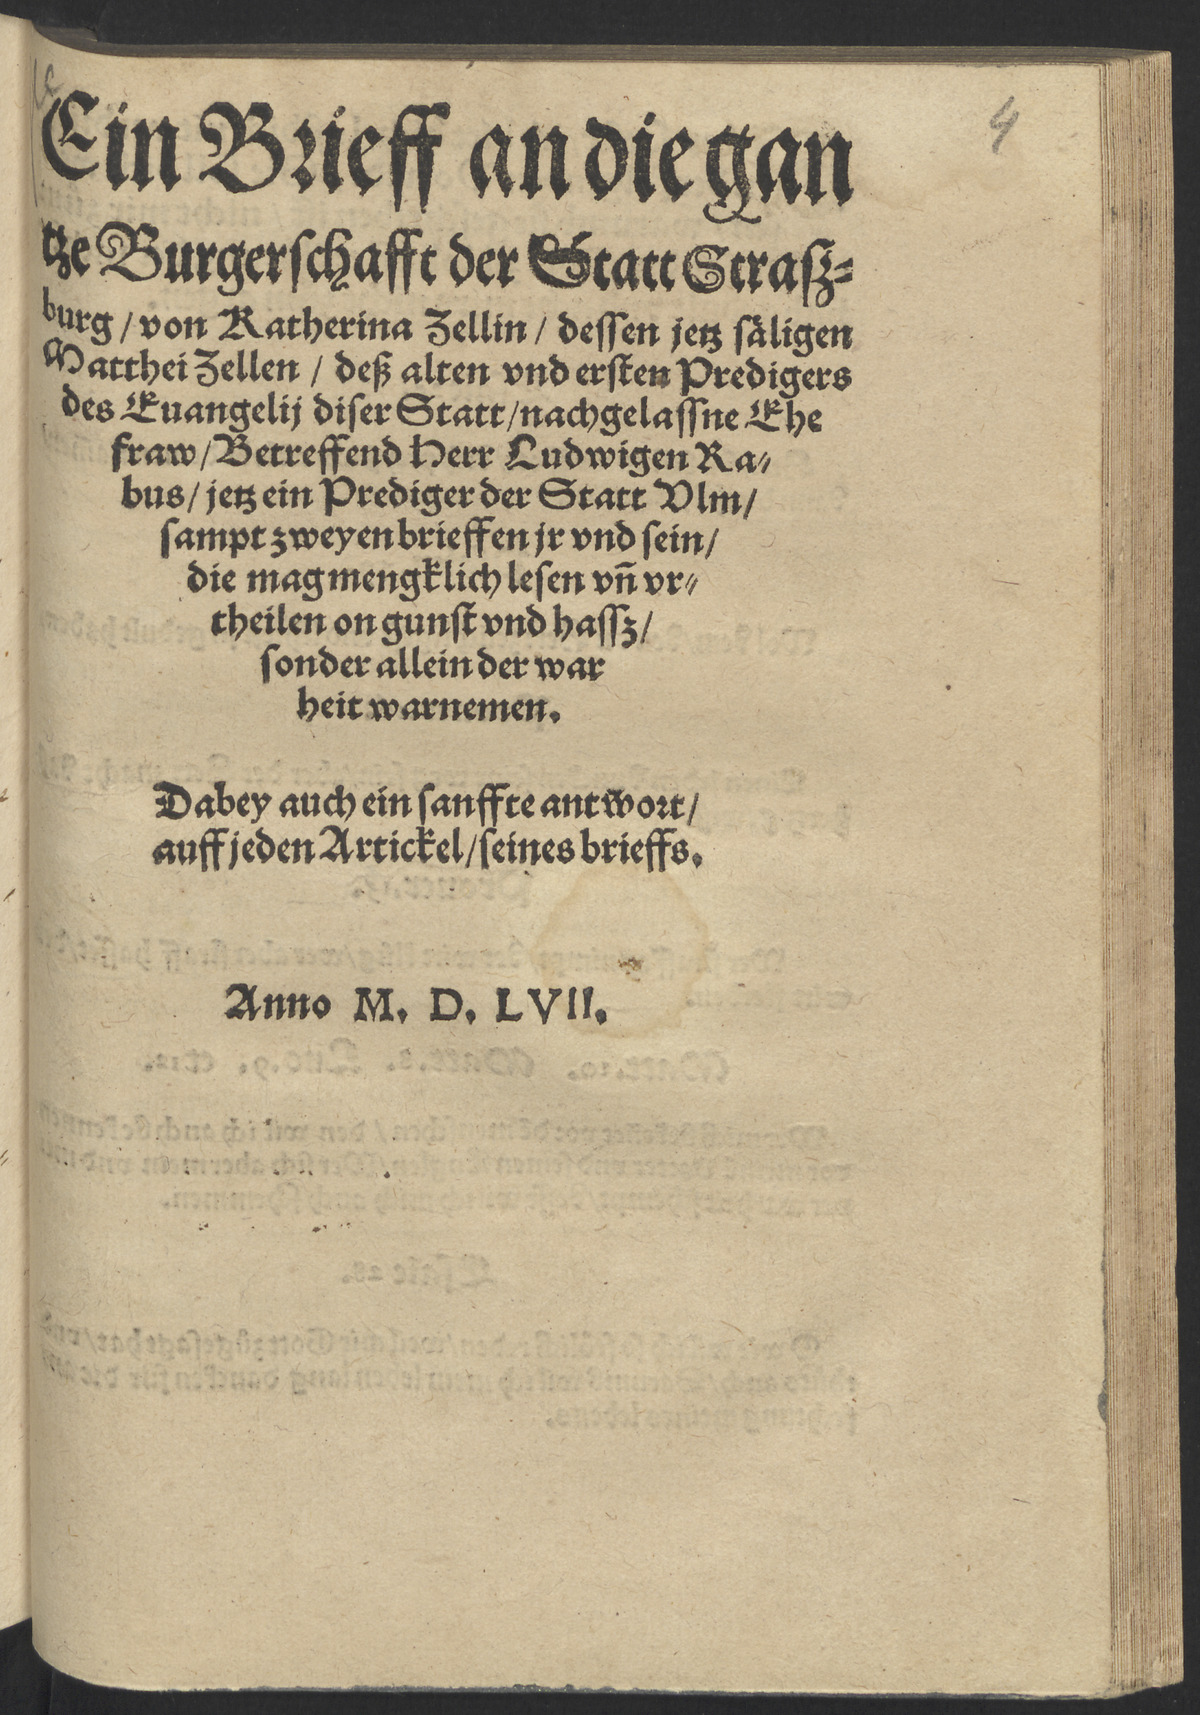 4
Ein Brieff an die gan
tze Burgerschafft der Statt Straſz⸗
burg / von Katherina Zellin / deſſen jetz säligen
Matthei Zellen / deß alten vnd erſten Predigers
des Euangelij diſer Statt / nachgelaſſne Ehe
fraw / Betreffend Herr Ludwigen Ra⸗
bus / jetz ein Prediger der Statt Vlm /
ſampt zweyen brieffen jr vnd ſein /
die mag mengklich leſen vn̄ vr⸗
theilen on gunſt vnd haſſz /
ſonder allein der war
heit warnemen.
Dabey auch ein ſanffte antwort /
auff jeden Artickel / ſeines brieffs.
Anno M. D. LVII.